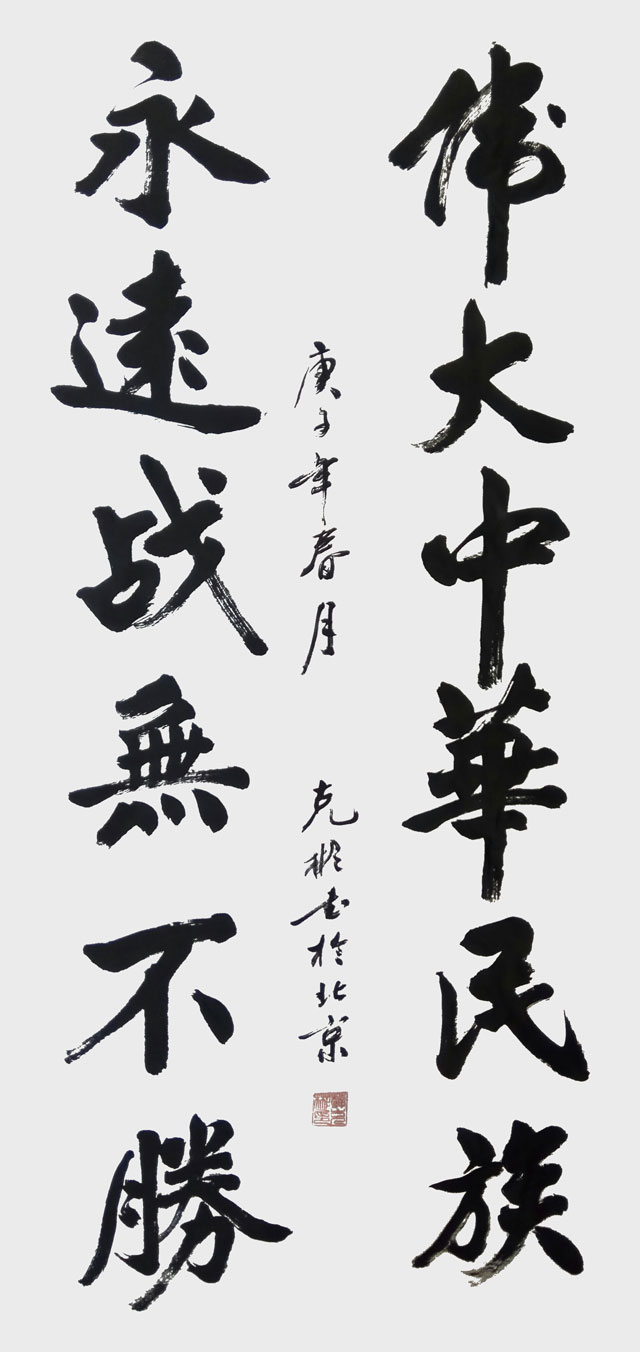 偉大中華民族
永遠战無不勝
庚子年春月
克書於北京